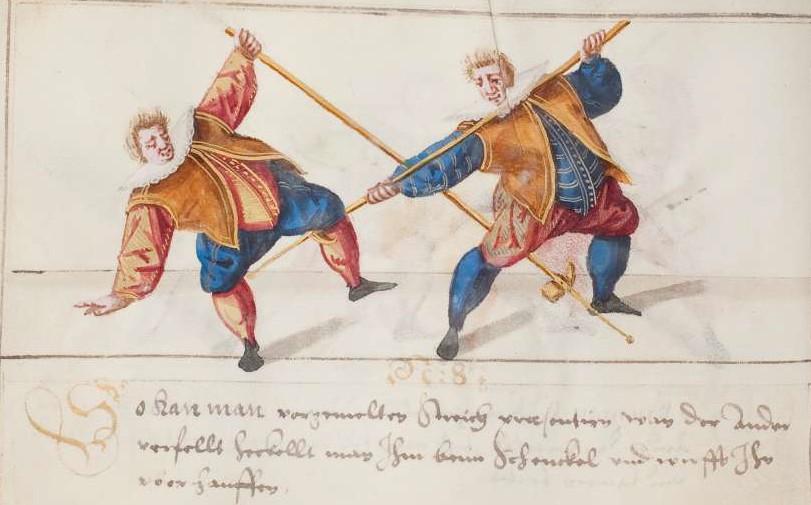 N°: 8.
So kan man vorgemelten Streich praesentirn, wan der Ander
verfellt hechellt man Ihm beim Schenckel und wirfft Ihn
vber hauffen.